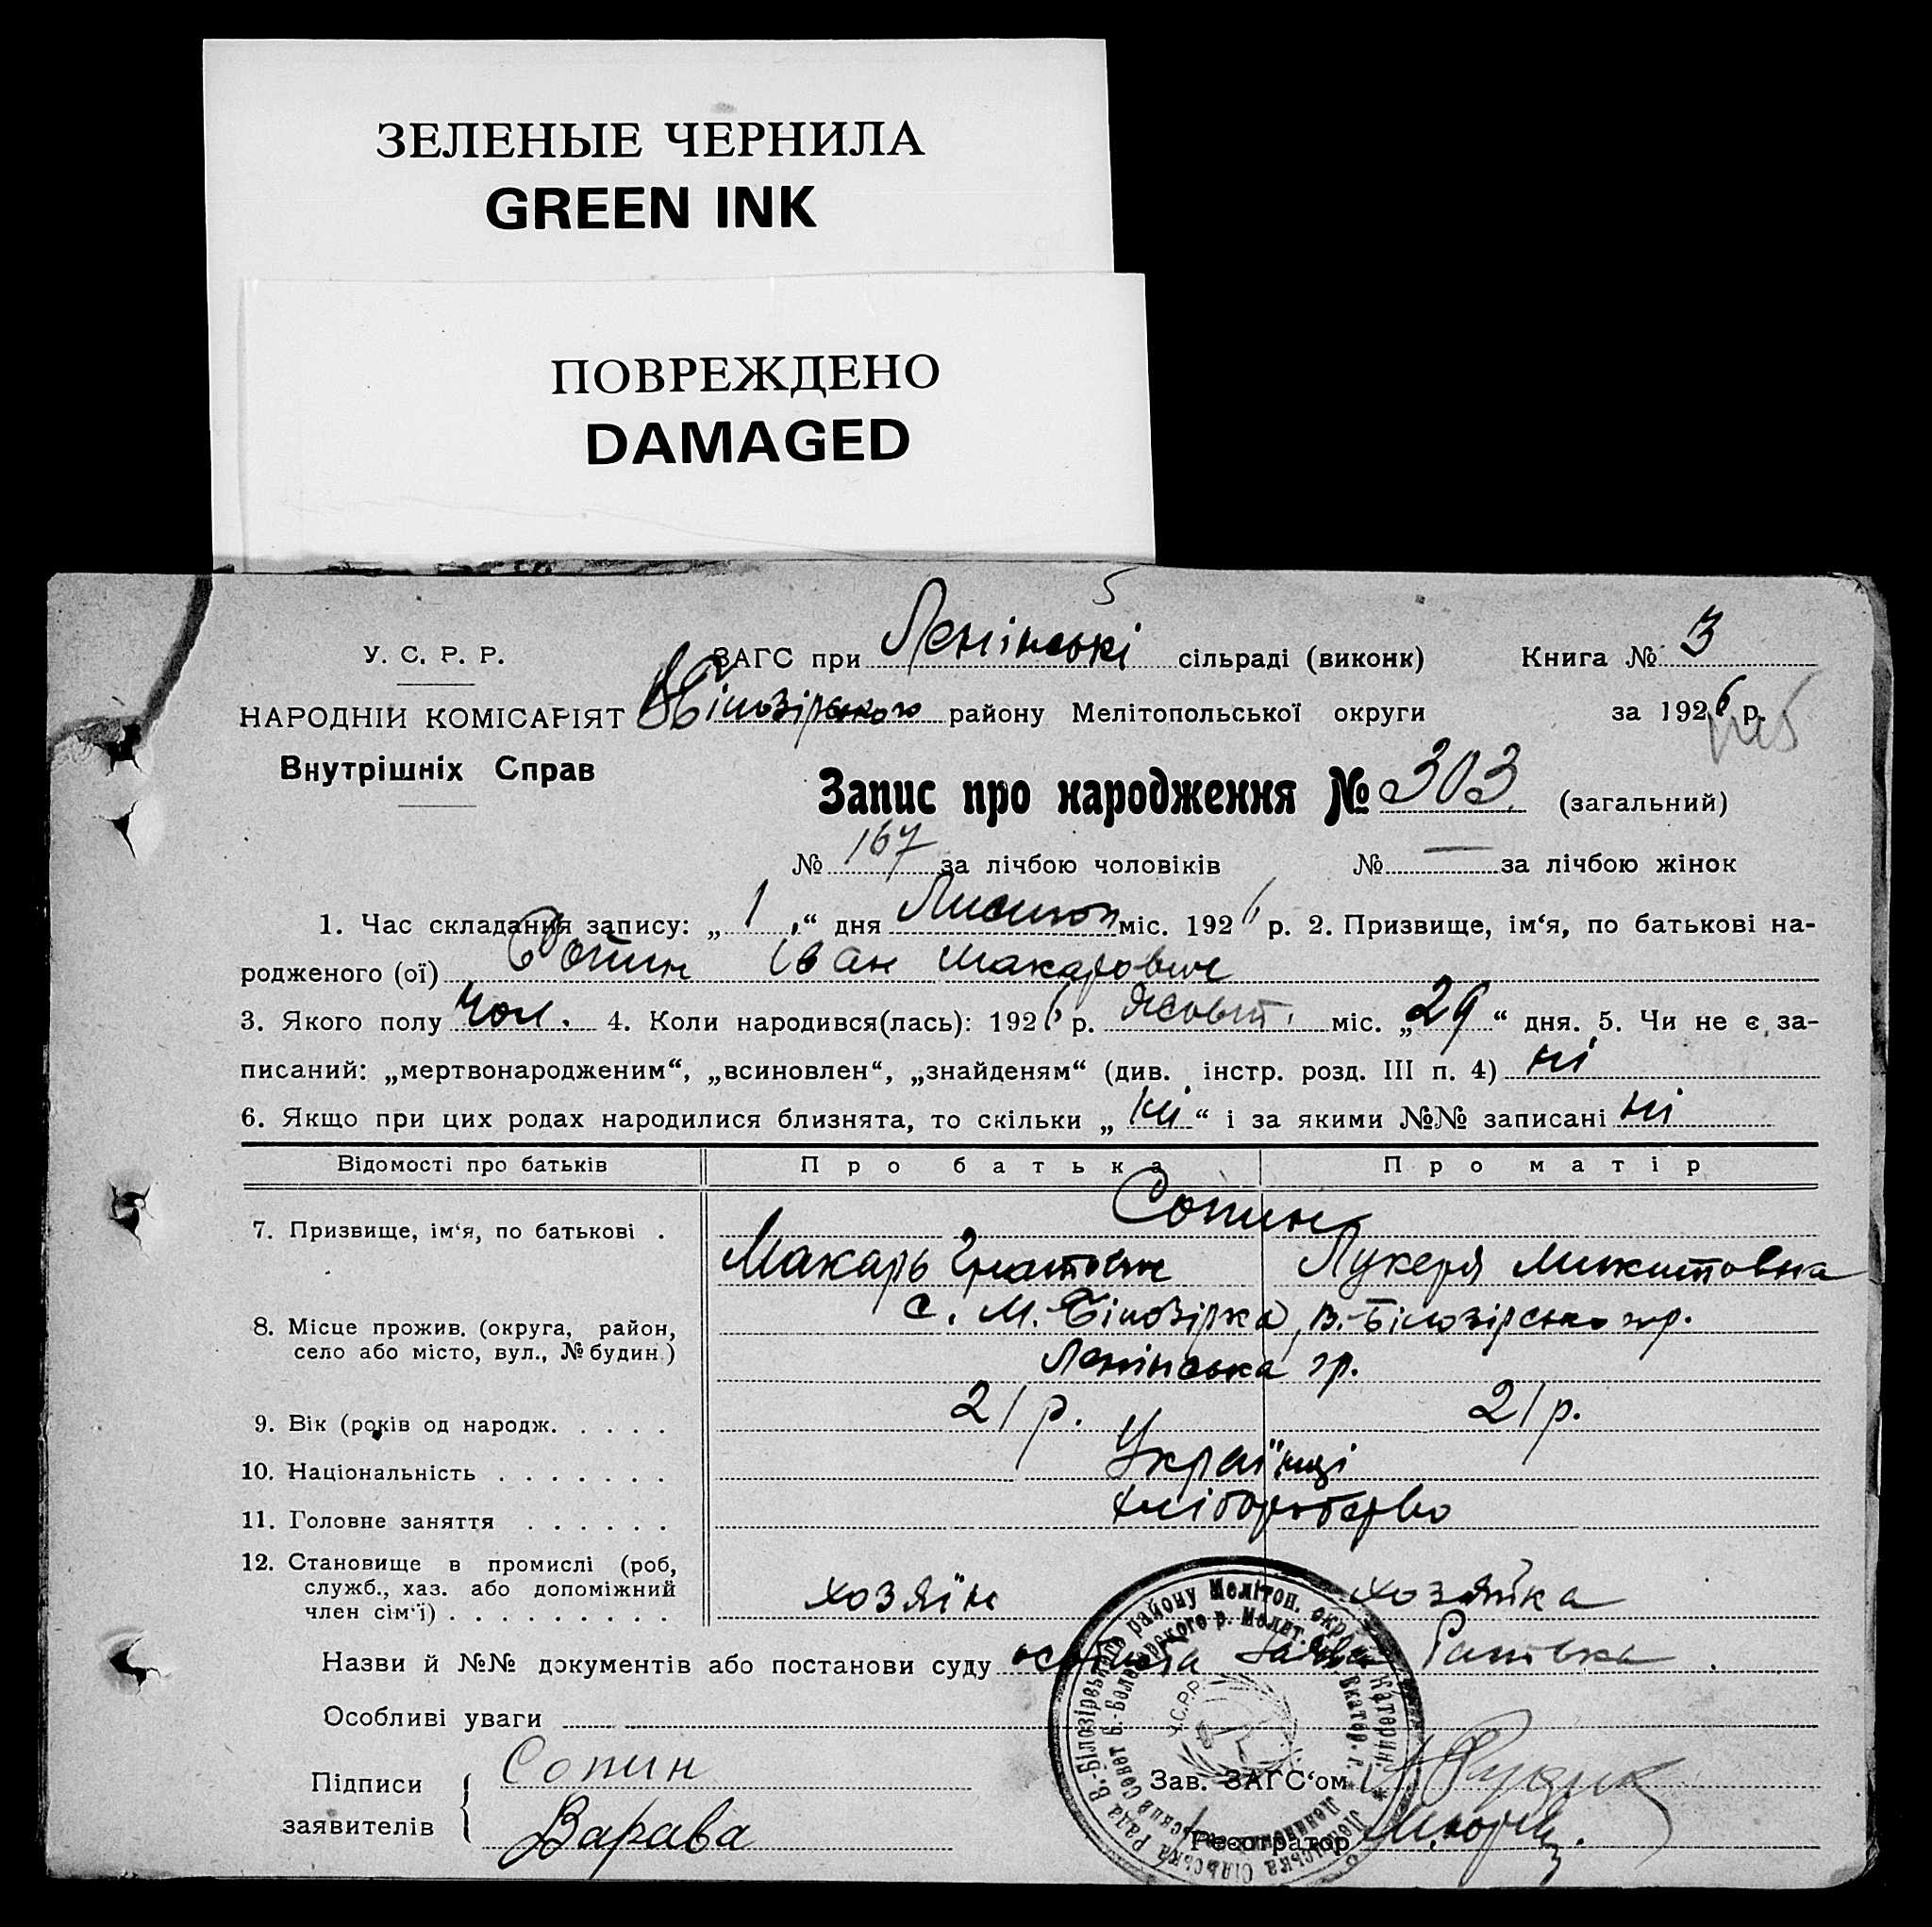 ЗЕЛЕНЫЕ ЧЕРНИЛА
GREEN INK
ПОВРЕЖДЕНО
DAMAGED
5
У. С. Р. Р.
ЗАГС при Ленінські сільраді (виконк) Книга № 3
НАРОДНІЙ КОМІСАРІЯТ
ВБілозірского району Мелітопольської округи за 1926 р.
Внутрішніх Справ
Запис про народження № 303 (загальний)
№ 167 за лічбою чоловіків № — за лічбою жінок
1. Час складання запису: „ 1 “ дня Листоп міс. 1926 р. 2. Призвище, ім‘я, по батькові на-
родженого (ої) Сопин Іван Макарович
3. Якого полу Чол. 4. Коли народився(лась): 1926 р. Жовт. міс. „29“ дня. 5. Чи не є за-
писаний: „мертвонародженим“, „всиновлен“, „знайденям“ (див. інстр. розд. III п. 4) ні
6. Якщо при цих родах народилися близнята, то скільки „ ні “ і за якими №№ записані ні
Відомості про батьків Про батька Про матір
7. Призвище, ім‘я, по батькові . Сопин
Макарь Гнатович Лукеря Микитовна
8. Місце прожив. (округа, район, с. М.-Білозірка, В.-Білозірського р.
село або місто, вул., № будин.) Ленінська гр.
9. Вік (років од народж. . . . . 21 р. 21 р.
10. Національність . . . . . . . Українці
11. Головне заняття . . . . . . хліборобство
12. Становище в промислі (роб,
служб., хаз. або допоміжний хозяїн хозяйка
член сім‘ї) . . . . . . . . .
Назви й №№ документів або постанови суду особиста заява
Особливі уваги
Підписи Сопин Зав. ЗАГС‘ом
заявителів Варава Реєстратор
У.С.Р.Р.